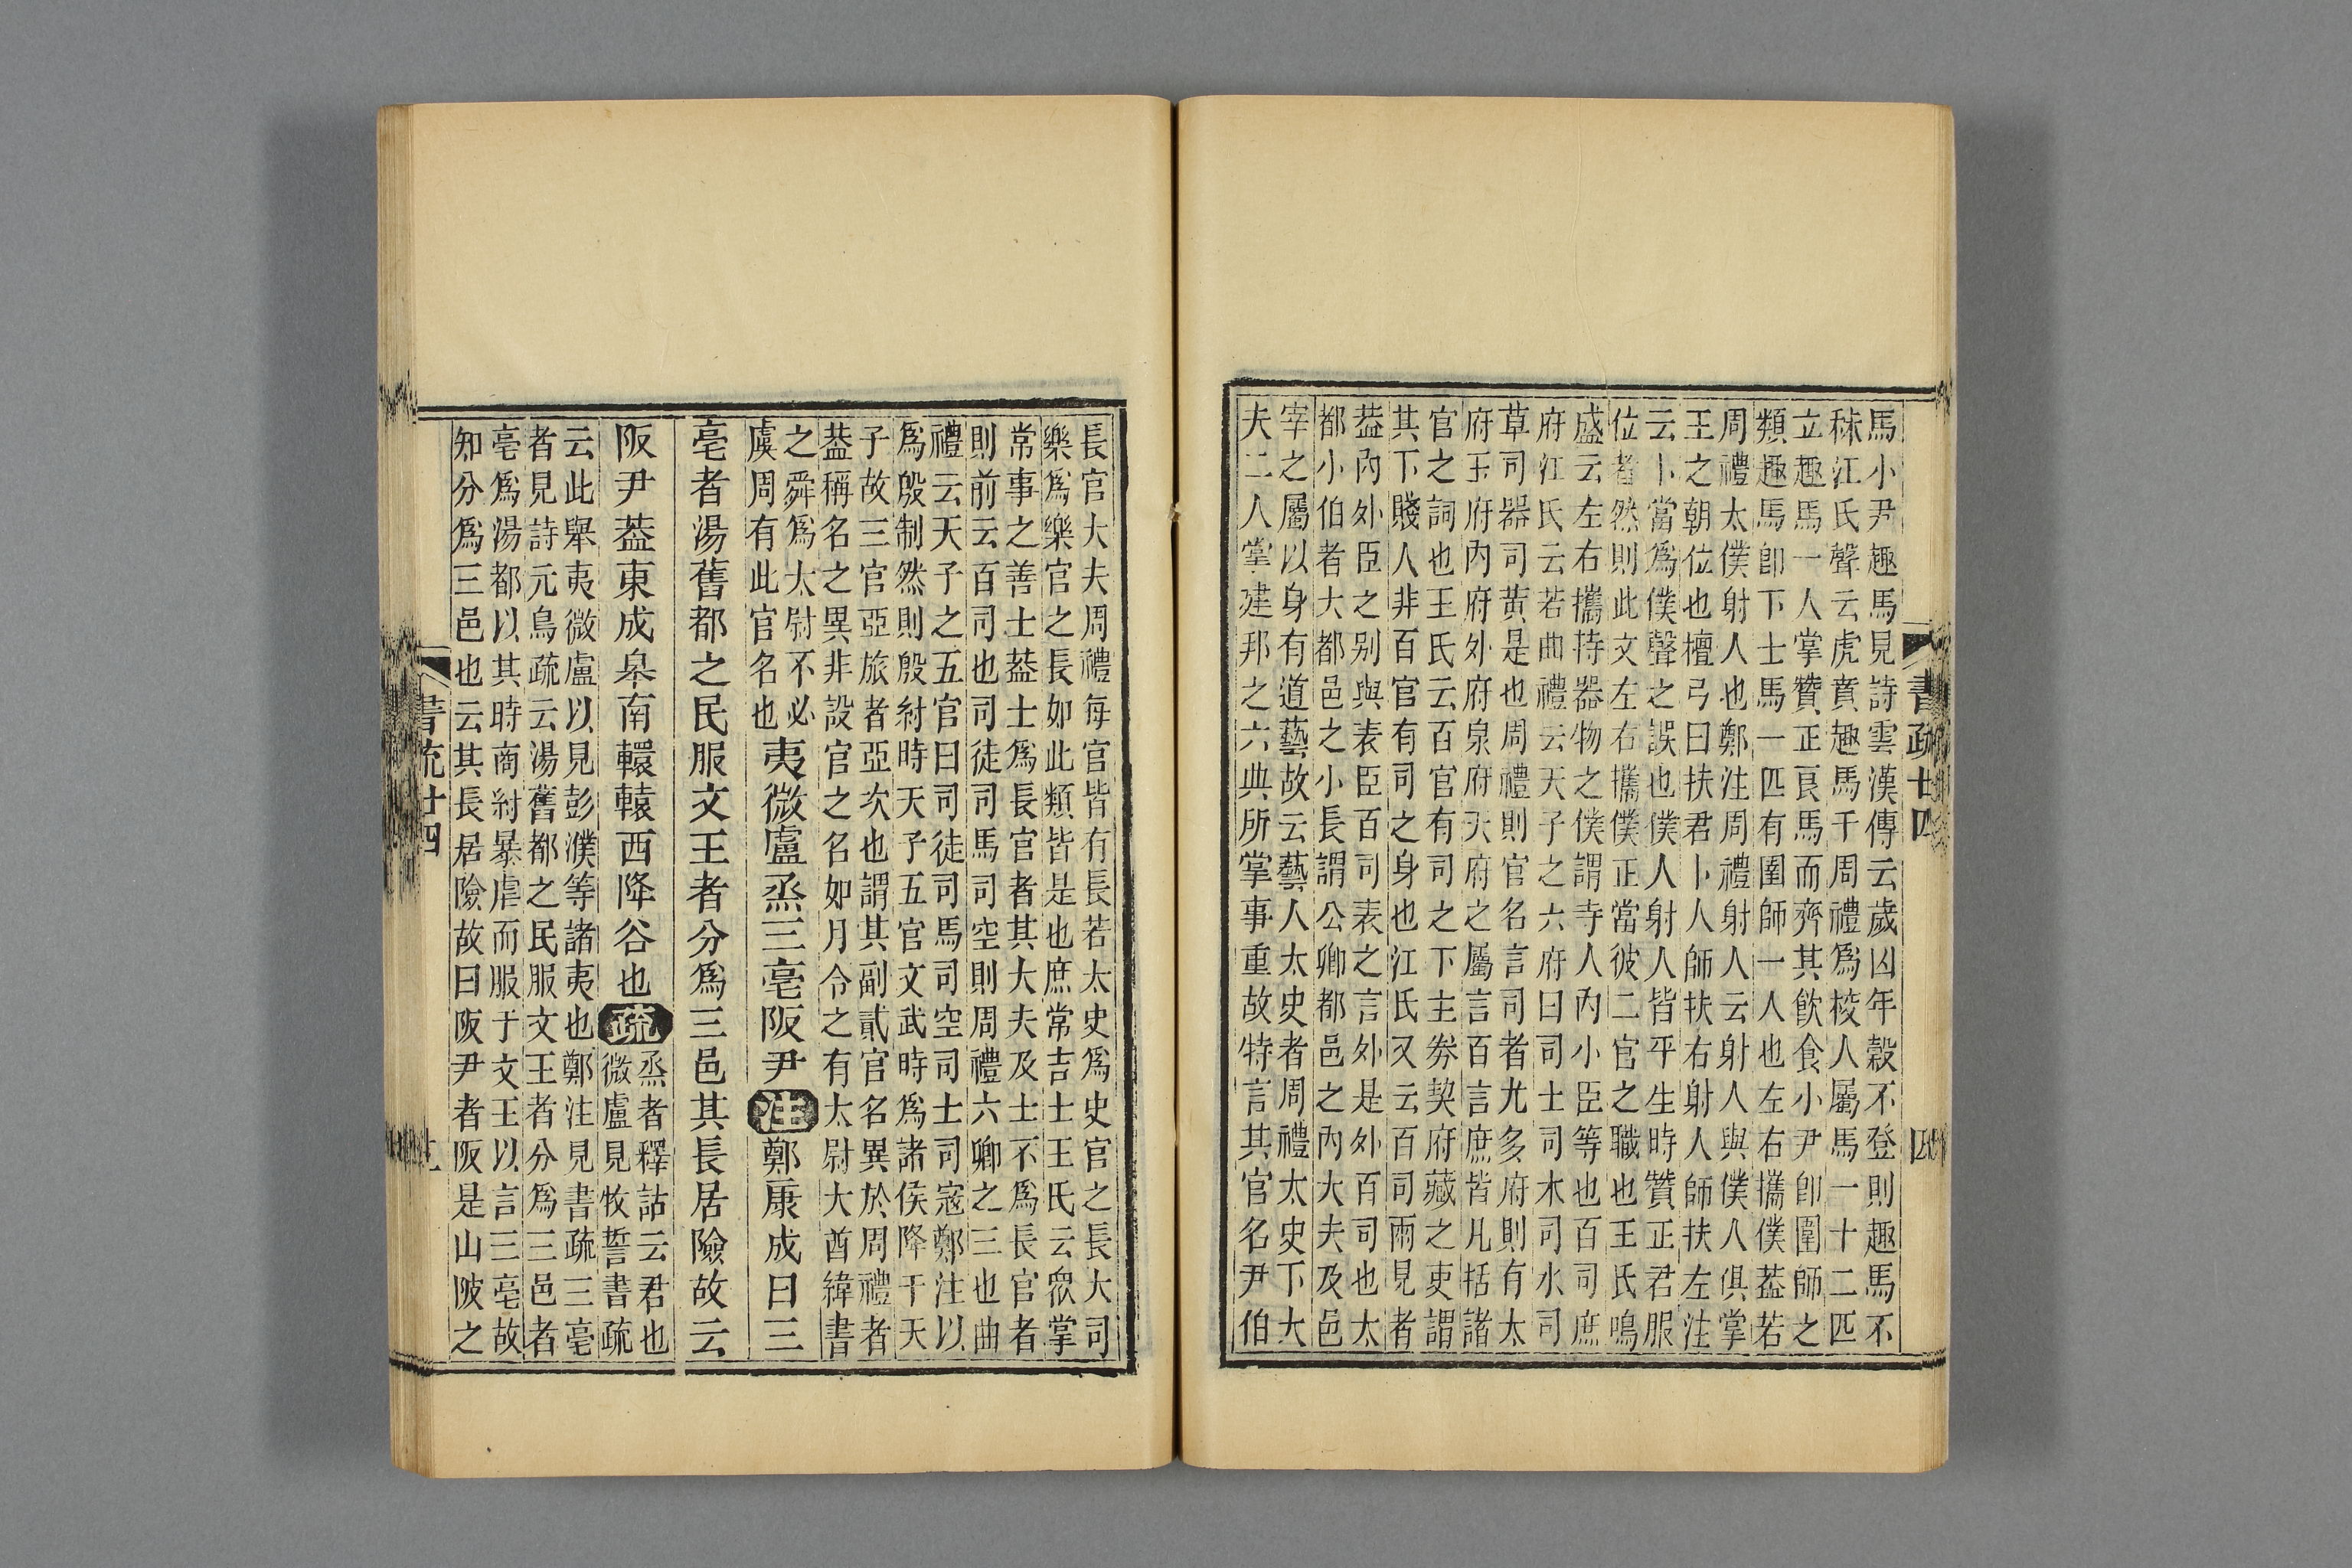 馬小尹趣馬見詩雲漢傳云歲凶年穀不登則趣馬不
秣江氏聲云虎賁趣馬于周禮爲校人屬馬一十二匹
立趣馬一人掌贊正良馬而齊其飲食小尹卽圉師之
類趣馬卽下士馬一匹有圉師一人也左右攜僕葢若
周禮太僕射人也鄭注周禮射人云射人與僕人俱掌
王之朝位也檀弓曰扶君卜人師扶右射人師扶左注
云卜當爲僕聲之誤也僕人射人皆平生時贊正君服
位者然則此文左右攜僕正當彼二官之職也王氏鳴
盛云左右攜持器物之僕謂寺人內小臣等也百司庶
府江氏云若曲禮云天子之六府曰司士司木司水司
草司器司黄是也周禮則官名言司者尤多府則有太
府玉府內府外府泉府天府之屬言百言庶皆凡括諸
官之詞也王氏云百官有司之下主劵契府藏之吏謂
其下賤人非百官有司之身也江氏又云百司兩見者
葢內外臣之别與表臣百司表之言外是外百司也太
都小伯者大都邑之小長謂公卿都邑之內大夫及邑
宰之屬以身有道藝故云藝人太史者周禮太史下大
夫二人掌建邦之六典所掌事重故特言其官名尹伯
書疏廿四
四
長官大夫周禮每官皆有長若太史爲史官之長大司
樂爲樂官之長如此類皆是也庶常吉士王氏云眾掌
常事之善士葢士爲長官者其大夫及士不爲長官者
則前云百司也司徒司馬司空則周禮六卿之三也曲
禮云天子之五官曰司徒司馬司空司士司寇鄭注以
爲殷制然則殷紂時天子五官文武時爲諸侯降于天
子故三官亞旅者亞次也謂其副貳官名異於周禮者
葢稱名之異非設官之名如月令之有太尉大酋緯書
之舜爲太尉不必
虞周有此官名也
夷微盧烝三亳阪尹注鄭康成曰三
亳者湯舊都之民服文王者分爲三邑其長居險故云
阪尹葢東成皋南轘轅西降谷也疏
烝者釋詁云君也
微盧見牧誓書疏
云此舉夷微盧以見彭濮等諸夷也鄭注見書疏三亳
者見詩元鳥疏云湯舊都之民服文王者分爲三邑者
亳爲湯都以其時商紂暴虐而服于文王以言三亳故
知分爲三邑也云其長居險故曰阪尹者阪是山陂之
書疏廿四